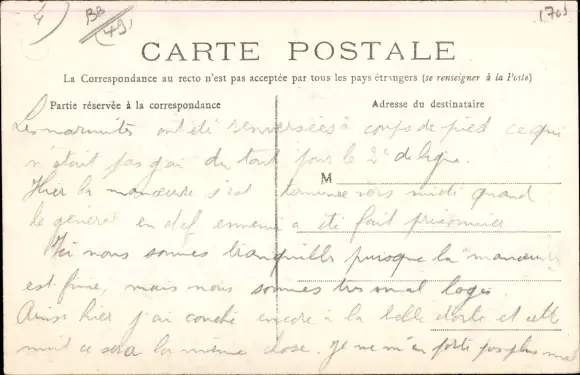 4)
BB
(49)
(70)
CARTE POSTALE
La Correspondance au recto n'est pas acceptée par tous les pays étrangers (se renseigner à la Poste)
Partie réservée à la correspondance
Adresse du destinataire
M
Les marmites ont été renversées à coups de pied ce qui
n'était pas gai du tout pour le 2e de ligne.
Hier la manœuvre s'est terminée vers midi quand
le général en chef ennemi a été fait prisonnier
Ici nous sommes tranquilles puisque la manœuvre
est finie, mais nous sommes très mal logés
Ainsi hier j'ai couché encore à la belle étoile et cette
nuit ce sera la même chose. Je ne m'en porte pas plus mal